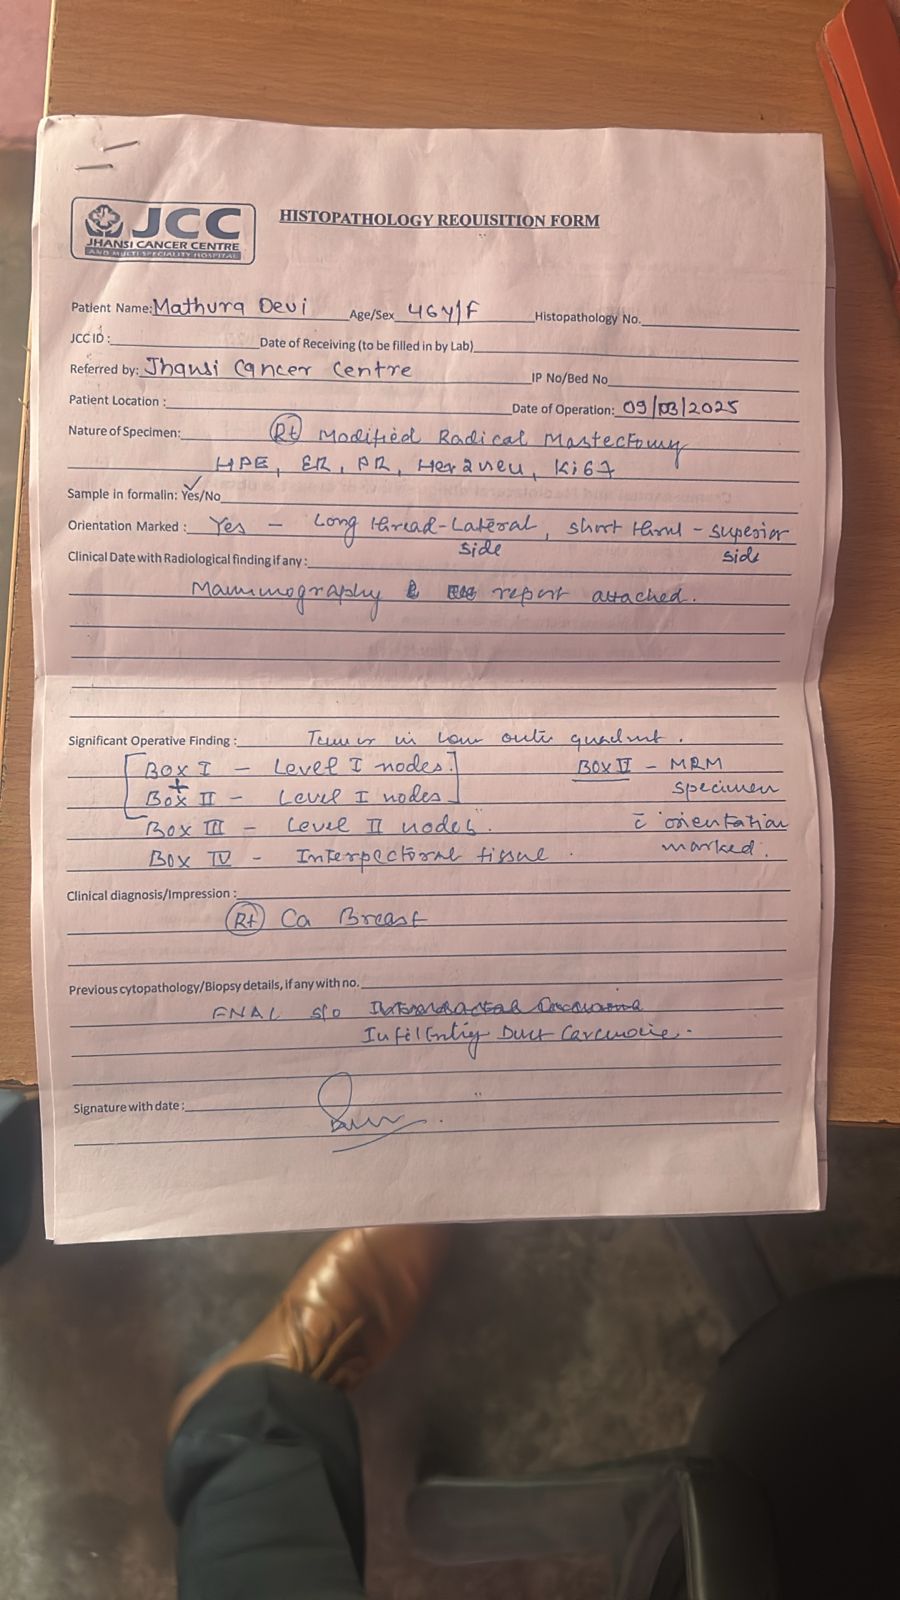 JCC
JHANSI CANCER CENTRE
AND MULTI SPECIALITY HOSPITAL
HISTOPATHOLOGY REQUISITION FORM
Patient Name: Mathura Devi Age/Sex 46Y/F Histopathology No.
JCC ID : Date of Receiving (to be filled in by Lab)
Referred by: Jhansi Cancer Centre IP No/Bed No
Patient Location : Date of Operation: 09/03/2025
Nature of Specimen: Rt Modified Radical Mastectomy
HPE, ER, PR, Her2neu, Ki67
Sample in formalin: Yes/No
Orientation Marked : Yes - Long thread-Lateral side, short - superior side
Clinical Date with Radiological finding if any :
Mammography report attached.
Significant Operative Finding : Tumor in outer quadrant.
Box I - Level I nodes.
+
Box II - Level I nodes
Box III - Level II nodes.
Box IV - Interpectoral tissue.
Box V - MRM
specimen
c̄ orientation
marked.
Clinical diagnosis/Impression :
Rt Ca Breast
Previous cytopathology/Biopsy details, if any with no.
FNAC s/o
Duct
Signature with date :